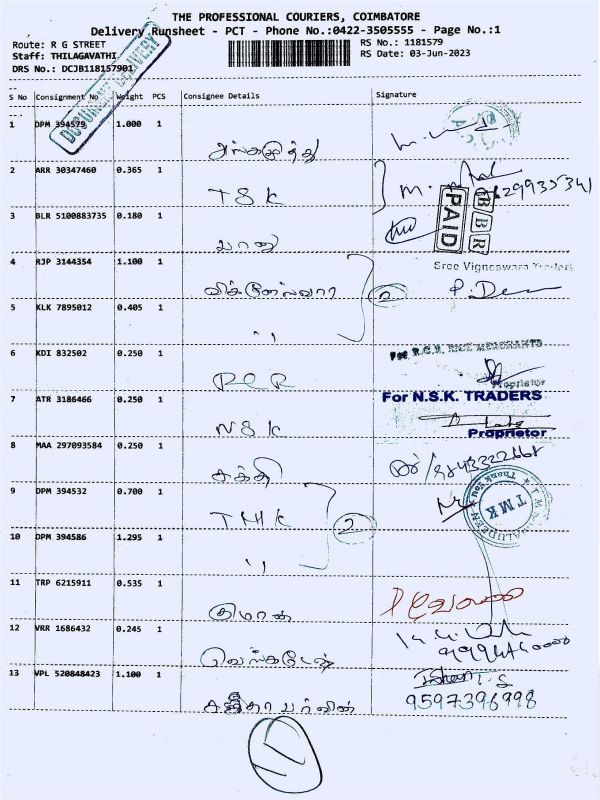 THE PROFESSIONAL COURIERS, COIMBATORE
Delivery Runsheet - PCT - Phone No.:0422-3505555 - Page No.:1
Route: R G STREET RS No.: 1181579
Staff: THILAGAVATHI RS Date: 03-Jun-2023
DRS No.: DCJB118157901
DOCUMENT DELIVERY
S No Consignment No Weight PCS Consignee Details Signature
1 DPM 394579 1.000 1
2 ARR 30347460 0.365 1
TSK M.
3 BLR 5100883735 0.180 1
பானு
PAID
BBR
4 RJP 3144354 1.100 1
Sree Vigneswara Traders
2
5 KLK 7895012 0.405 1
"
6 KDI 832502 0.250 1
For R.G.R. RICE MERCHANTS
Proprietor
7 ATR 3186466 0.250 1
For N.S.K. TRADERS
NSK
Proprietor
8 MAA 297093584 0.250 1
சக்தி
9 DPM 394532 0.700 1
TMK 2
Thank You
TMK
10 DPM 394586 1.295 1
"
11 TRP 6215911 0.535 1
12 VRR 1686432 0.245 1
வெங்கடேஷ்
13 VPL 520848423 1.100 1
9597396998
11